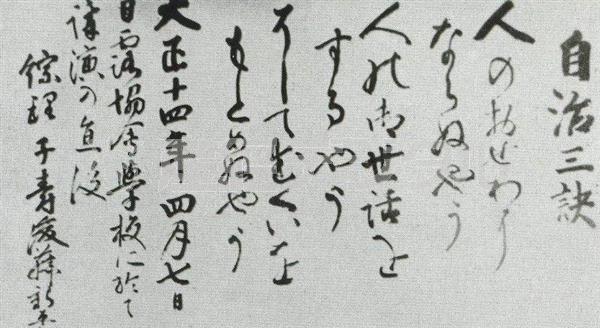 自治三訣
人のおせわに
ならぬやう
人の御世話を
するやう
そしてむくいを
もとめぬやう
大正十四年四月七日
日露協会学校に於て
講演の直後
総理 子寿 後藤新平